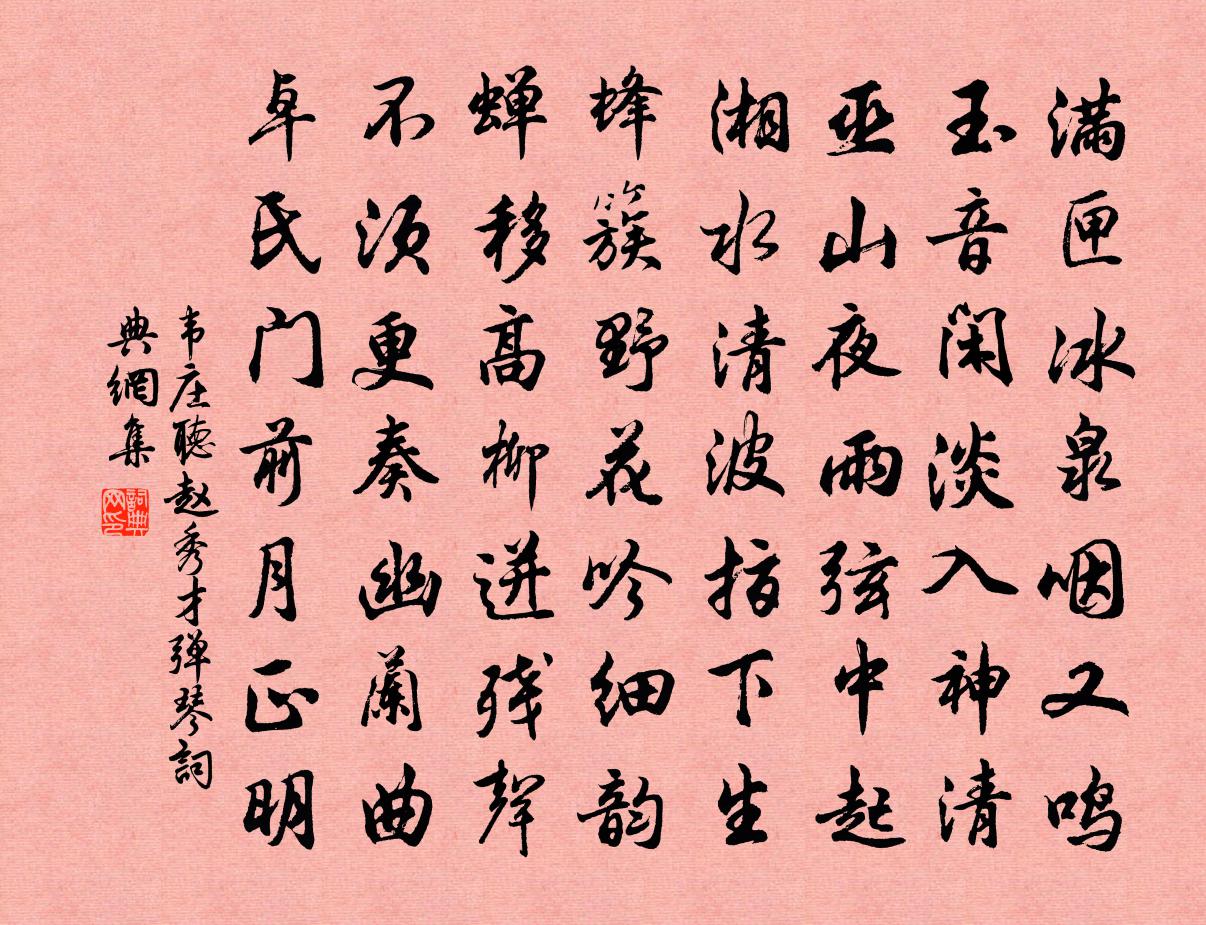 满匣冰泉咽又鸣
玉音闲淡入神清
巫山夜雨弦中起
湘水清波指下生
蜂簇野花吟细韵
蝉移高柳迸残声
不须更奏幽兰曲
卓氏门前月正明
韦庄聽赵秀才弹琴詞
典網集
詞典网印